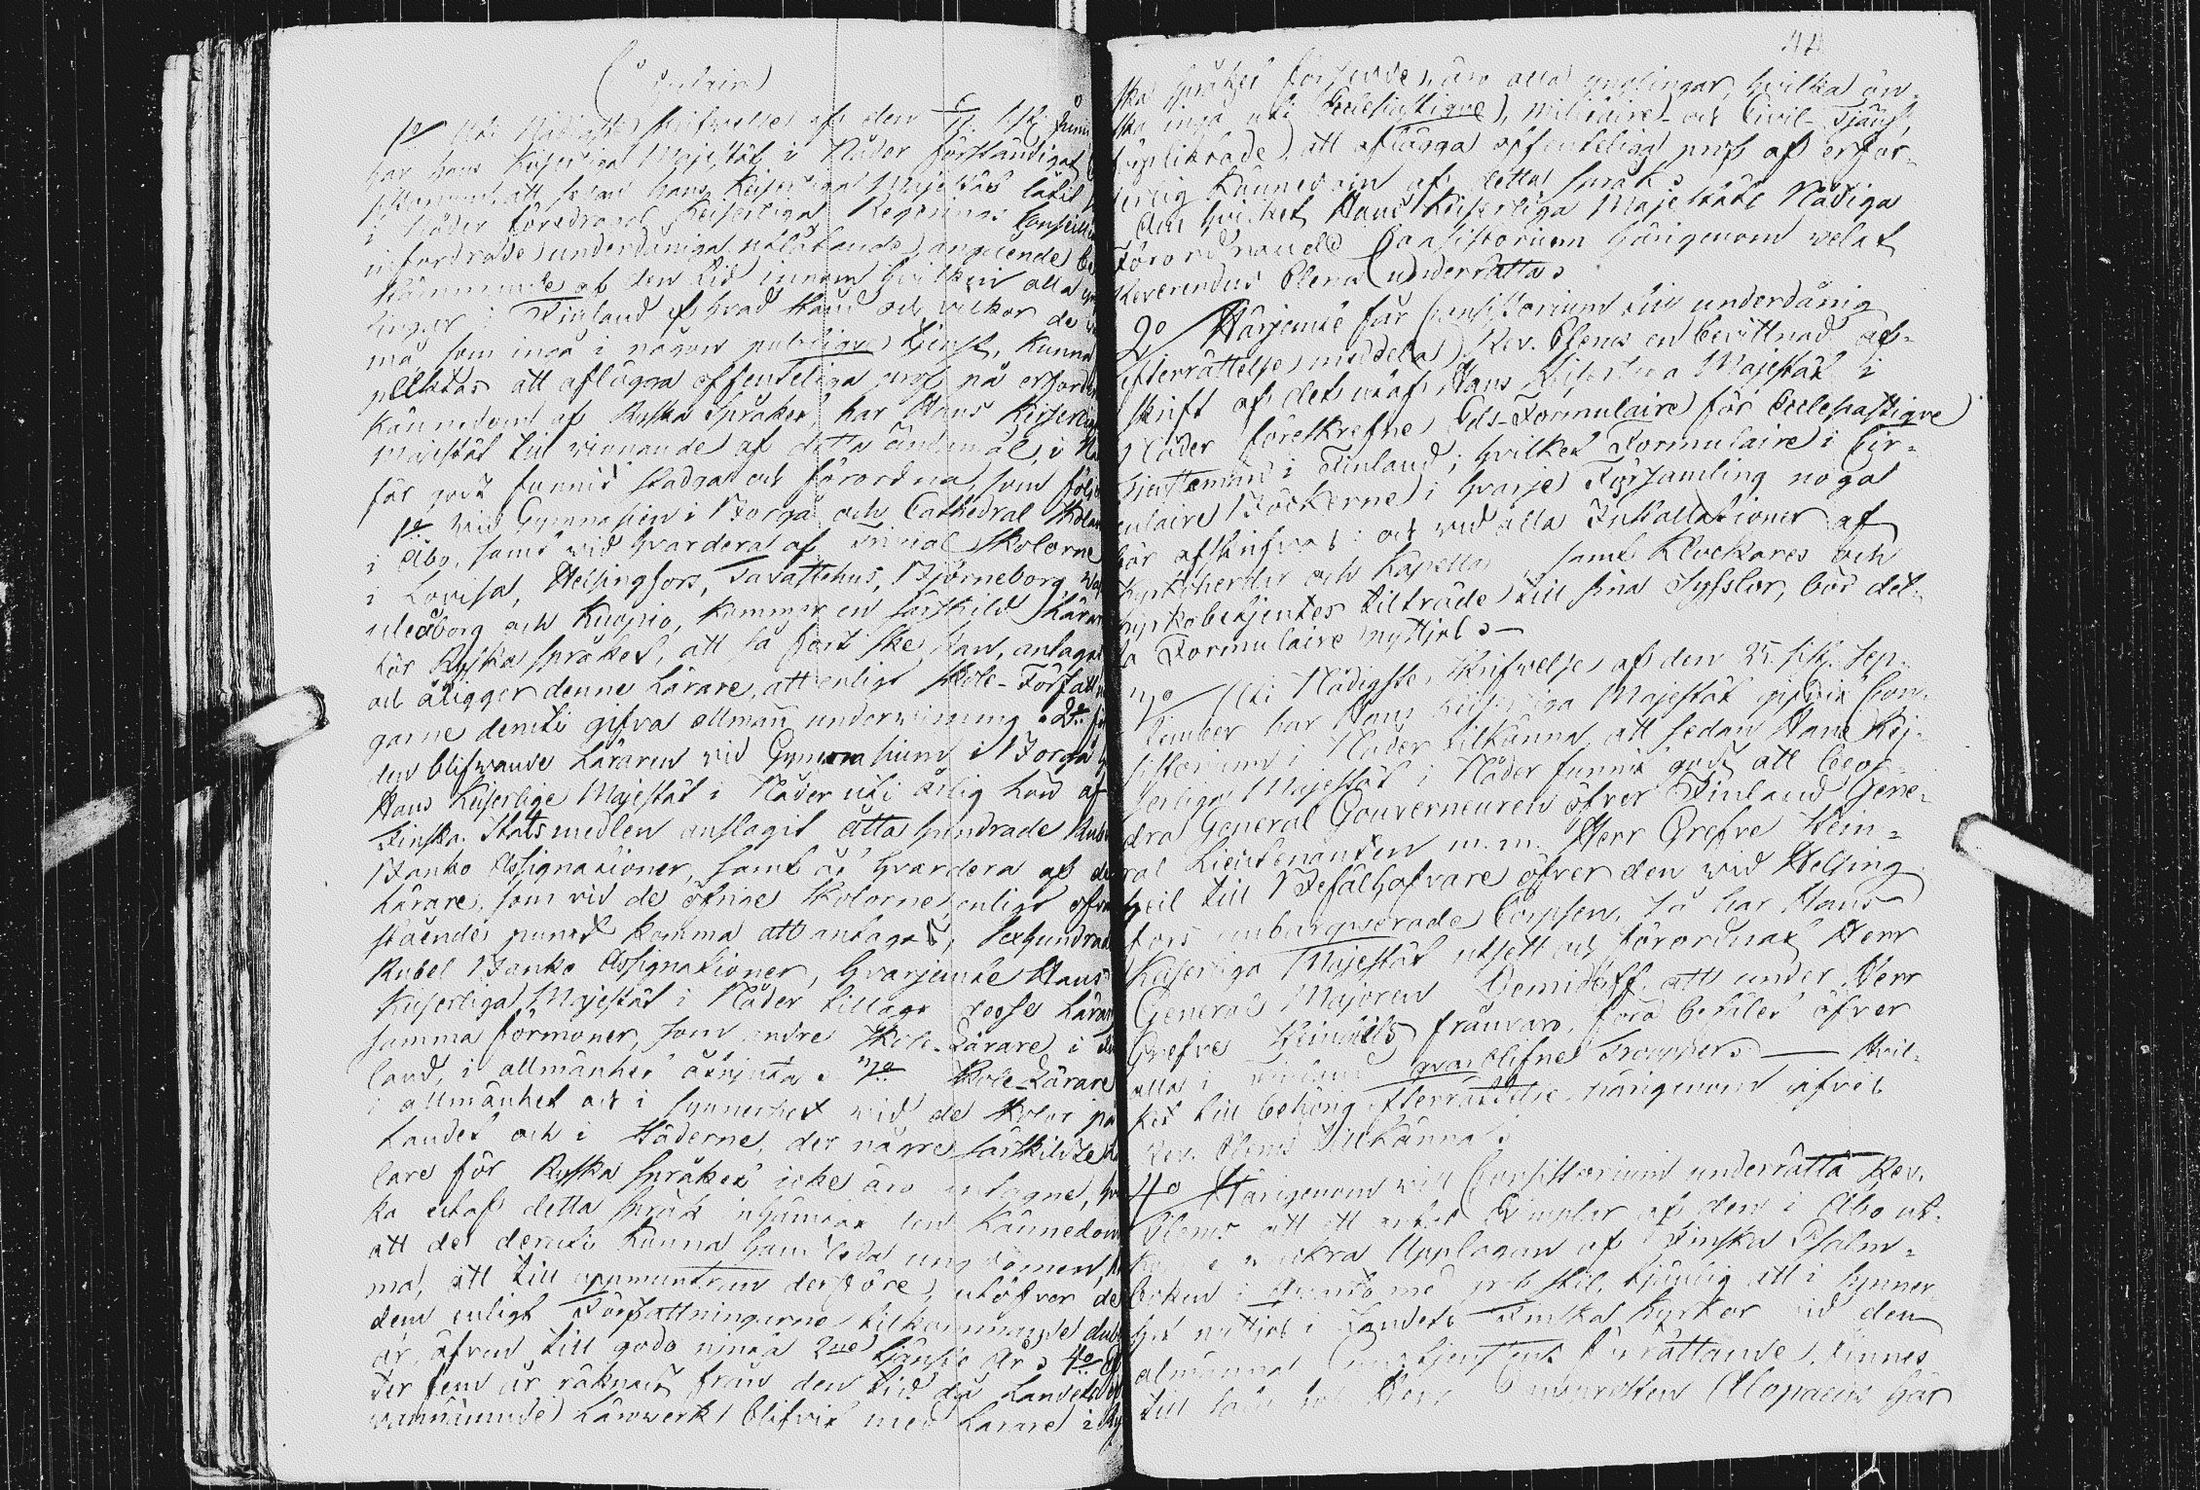 Circulair
1o Uti Nådigste skrifwelse af den 6/17 sistl. Junii
har Hans Kejserliga Majestät i Nåder förständigat
att sedan Hans Kejserliga Majestät låtit
i Nåder föredragas Kejserliga Regerings Conseillens
infordrade underdåniga utlåtande, angående be
stämmande af den tid innom hvilken alla yng
lingar i Finland af hvad stånd och vilkor de
må som ingå i någon publique tjenst, kunna
att aflägga offentliga prof på erforderlig
kännedom af Ryska Språket, har Hans Kejserliga
Majestät till vinnande af detta ändamål, i Nå
der godt funnit stadga och förordna, som följer
1o Wid Gymnasien i Borgå och Cathedral Skolan
i Åbo, samt wid hvardera af Trivial Skolorne
i Lovisa, Helsingfors, Tavastehus, Björneborg, Wasa
Uleåborg och Kuopio, kommer en särskild Lärare
för Ryska Språket, att så fort ske kan, antagas
och åligger denne Lärare, att enligt Skole-Författnin
garne deruti gifva allmän underwisning. 2o för
den blifwande Läraren vid Gymnasium i Borgå
Hans Kejserlige Majestät i Nåder uti årlig lön af
Finska Statsmedlen anslagit Åtta hundrade Rubel
Banko Assignationer, samt åt hvardera af de
Lärare, som vid de öfrige Skolorne, enligt ofvan
stående punct komma att antagas, Sexhundrade
Rubel Banko Assignationer, hvarjemte Hans
Kejserliga Majestät i Nåder tillagt desse Lärare
samma förmoner, som andre Skole-Lärare i Fin
land, i allmänhet åtnjuta. 3o Skole-Lärare
i allmänhet och i synnerhet wid de Skolor på
Landet och i Städerne, der några särskilde Lä
rare för Ryska Språket icke äro antagne, hvil
ka utaf detta språk inhämtat den kännedom
att de deruti kunna handleda ungdomen,
må, att till uppmuntran derföre, utöfver de
dem enligt Författningarne tillkommande dubbel
år, äfven till godo njuta 2ne tjänste År. 4o Ef
ter fem år räknadt från den tid då Landets of
wannämnde Lärowerk blifvit med Lärare i Ry
44
ska språket försedde, äro alla ynglingar, hvilka ön-
ska ingå uti Ecclesiastique, militaire- och Civil-Tjänst,
förpliktade, att aflägga offentliga prof af erfor-
derlig kännedom af detta språk.
Om hvilket Hans Kejserliga Majestäts Nådiga
Förordnande Consistorium härigenom welat
Reverendus Plena underrätta.
2o Härjemte får Consistorium till underdånig
efterrättelse meddela Rev. Plenis en bevittnad af-
skrift af det utaf Hans Kejserliga Majestät i
Nåder föreskrefne Eds-Formulaire för Ecclesiastique
Tjenstemän i Finland; hvilket Formulaire i Cir-
culaire Böckerne i hvarje Församling noga
bör afskrifvas och wid alla Installationer af
Kyrkoherdar och Kapellan, samt Klockares och
Kyrkobetjentes tillträde till sina Sysslor, bör det-
ta Formulaire nyttjas.—
3o Uti Nådigste skrifwelse af den 25 sistl. Sep-
tember har Hans Kejserliga Majestät gifvit Con-
sistorium i Nåder tillkänna, att sedan Hans Kej-
serliga Majestät i Nåder funnit godt att beor-
dra General Gouverneuren öfver Finland Gene-
ral Lieutenanten m. m. Herr Grefve Stein-
heil till Befälhafvare öfver den wid Helsing
fors embarquerade Corpsen, så har Hans
Kejserliga Majestät utsett och förordnat Herr
General Majoren Demidoff, att under Herr
Grefve Steinheils frånvaro, föra befälet öfver
alla i Finland qvarblifne Troupper. — Hvil-
ket till behörig efterrättelse härigenom gifves
Rev. Plenis tillkänna.
4o Härigenom will Consistorium underrätta Rev.
Plenis att ett antal Exemplar af den i Åbo ut-
komne wackra Upplagan af Finska Psalm-
boken i Qvarto med grof stil, tjänlig att i synner-
het nyttjas i Landets Finska kyrkor vid den
almänna Gudstjenstens förrättande, finnes
till salu hos Herr Domprosten Alopaeus här